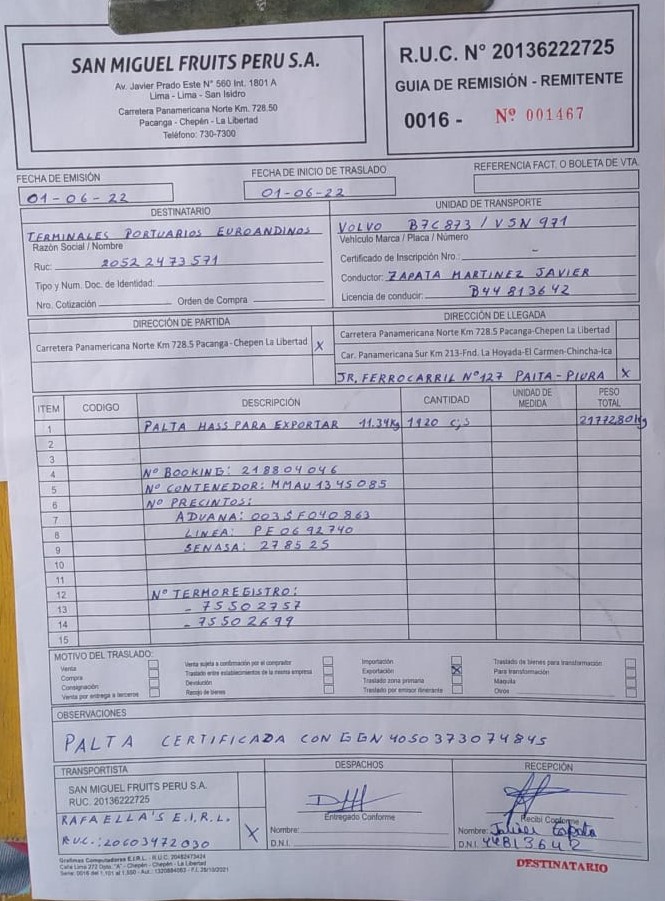 SAN MIGUEL FRUITS PERU S.A.
Av. Javier Prado Este N° 560 Int. 1801 A
Lima - Lima - San Isidro
Carretera Panamericana Norte Km. 728.50
Pacanga - Chepén - La Libertad
Teléfono: 730-7300
R.U.C. N° 20136222725
GUIA DE REMISIÓN - REMITENTE
0016 - Nº 001467
FECHA DE EMISIÓN
01-06-22
FECHA DE INICIO DE TRASLADO
01-06-22
REFERENCIA FACT. O BOLETA DE VTA.
DESTINATARIO
TERMINALES PORTUARIOS EUROANDINOS
Razón Social / Nombre
Ruc: 20522473571
Tipo y Num. Doc. de Identidad:
Nro. Cotización Orden de Compra
UNIDAD DE TRANSPORTE
VOLVO B7C873 / V5N 971
Vehículo Marca / Placa / Número
Certificado de Inscripción Nro.: -
Conductor: ZAPATA MARTINEZ JAVIER
Licencia de conducir: B44813642
DIRECCIÓN DE PARTIDA
Carretera Panamericana Norte Km 728.5 Pacanga-Chepen La Libertad X
DIRECCIÓN DE LLEGADA
Carretera Panamericana Norte Km 728.5 Pacanga-Chepen La Libertad
Car. Panamericana Sur Km 213-Fnd. La Hoyada-El Carmen-Chincha-Ica
JR. FERROCARRIL Nº127 PAITA-PIURA X
ITEM CODIGO DESCRIPCIÓN CANTIDAD UNIDAD DE MEDIDA PESO TOTAL
1 PALTA HASS PARA EXPORTAR 11.34kg 1920 cjs 21772.80kg
2
3
4 Nº BOOKING: 218804046
5 Nº CONTENEDOR: MMAU1345085
6 Nº PRECINTOS:
7 ADUANA: 003SF040863
8 LINEA: PE0692740
9 SENASA: 278525
10
11
12 Nº TERMOREGISTRO:
13 - 75502757
14 - 75502699
15
MOTIVO DEL TRASLADO:
Venta
Compra
Consignación
Venta por entrega a terceros
Venta sujeta a confirmación por el comprador
Traslado entre establecimientos de la misma empresa
Devolución
Recojo de bienes
Importación
Exportación X
Traslado zona primaria
Traslado por emisor itinerante
Traslado de bienes para transformación
Para transformación
Maquila
Otros
OBSERVACIONES
PALTA CERTIFICADA CON GGN 4050373074845
TRANSPORTISTA
SAN MIGUEL FRUITS PERU S.A.
RUC. 20136222725
RAFAELLA'S E.I.R.L.
RUC.: 20603472030 X
DESPACHOS
Entregado Conforme
Nombre:
D.N.I.
RECEPCIÓN
Recibí Conforme
Nombre: Javier Zapata
D.N.I. 44813642
Grafimas Computadoras E.I.R.L. - R.U.C. 20482473424
Calle Lima 272 Dpto. "A" - Chepén - Chepén - La Libertad
Serie: 0016 del 1,101 al 1,500 - Aut.: 1320884063 - F.I. 26/10/2021
DESTINATARIO